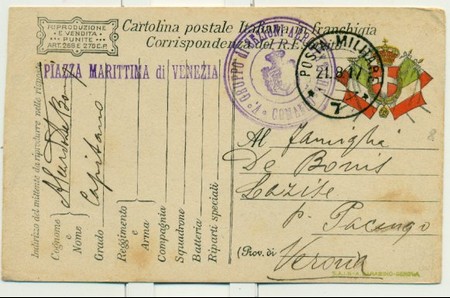 RIPRODUZIONE
E VENDITA
PUNITE
ART. 268 E 270 C.P.
Cartolina postale Italiana in franchigia
Corrispondenza del R. E
PIAZZA MARITTIMA di VENEZIA
V° GRUPPO
COMANDO
POSTA MILITARE
21.8.17
7
Indirizzo del mittente da riprodurre nelle risposte
Cognome e Nome
Grado Capitano
Reggimento e Arma
Compagnia
Squadrone
Batteria
Riparti speciali
Al Famiglia
De Bonis
Lazise
p. Pacengo
(Prov. di) Verona